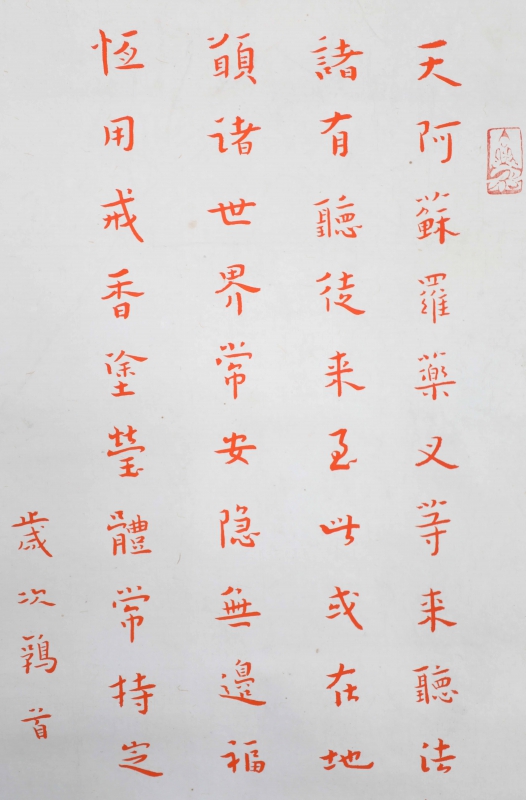 天阿蘇羅藥叉等来聽法
諸有聽徒来至此或在地
願诸世界常安隐無邊福
恆用戒香塗瑩體常持定
歲次鶉首